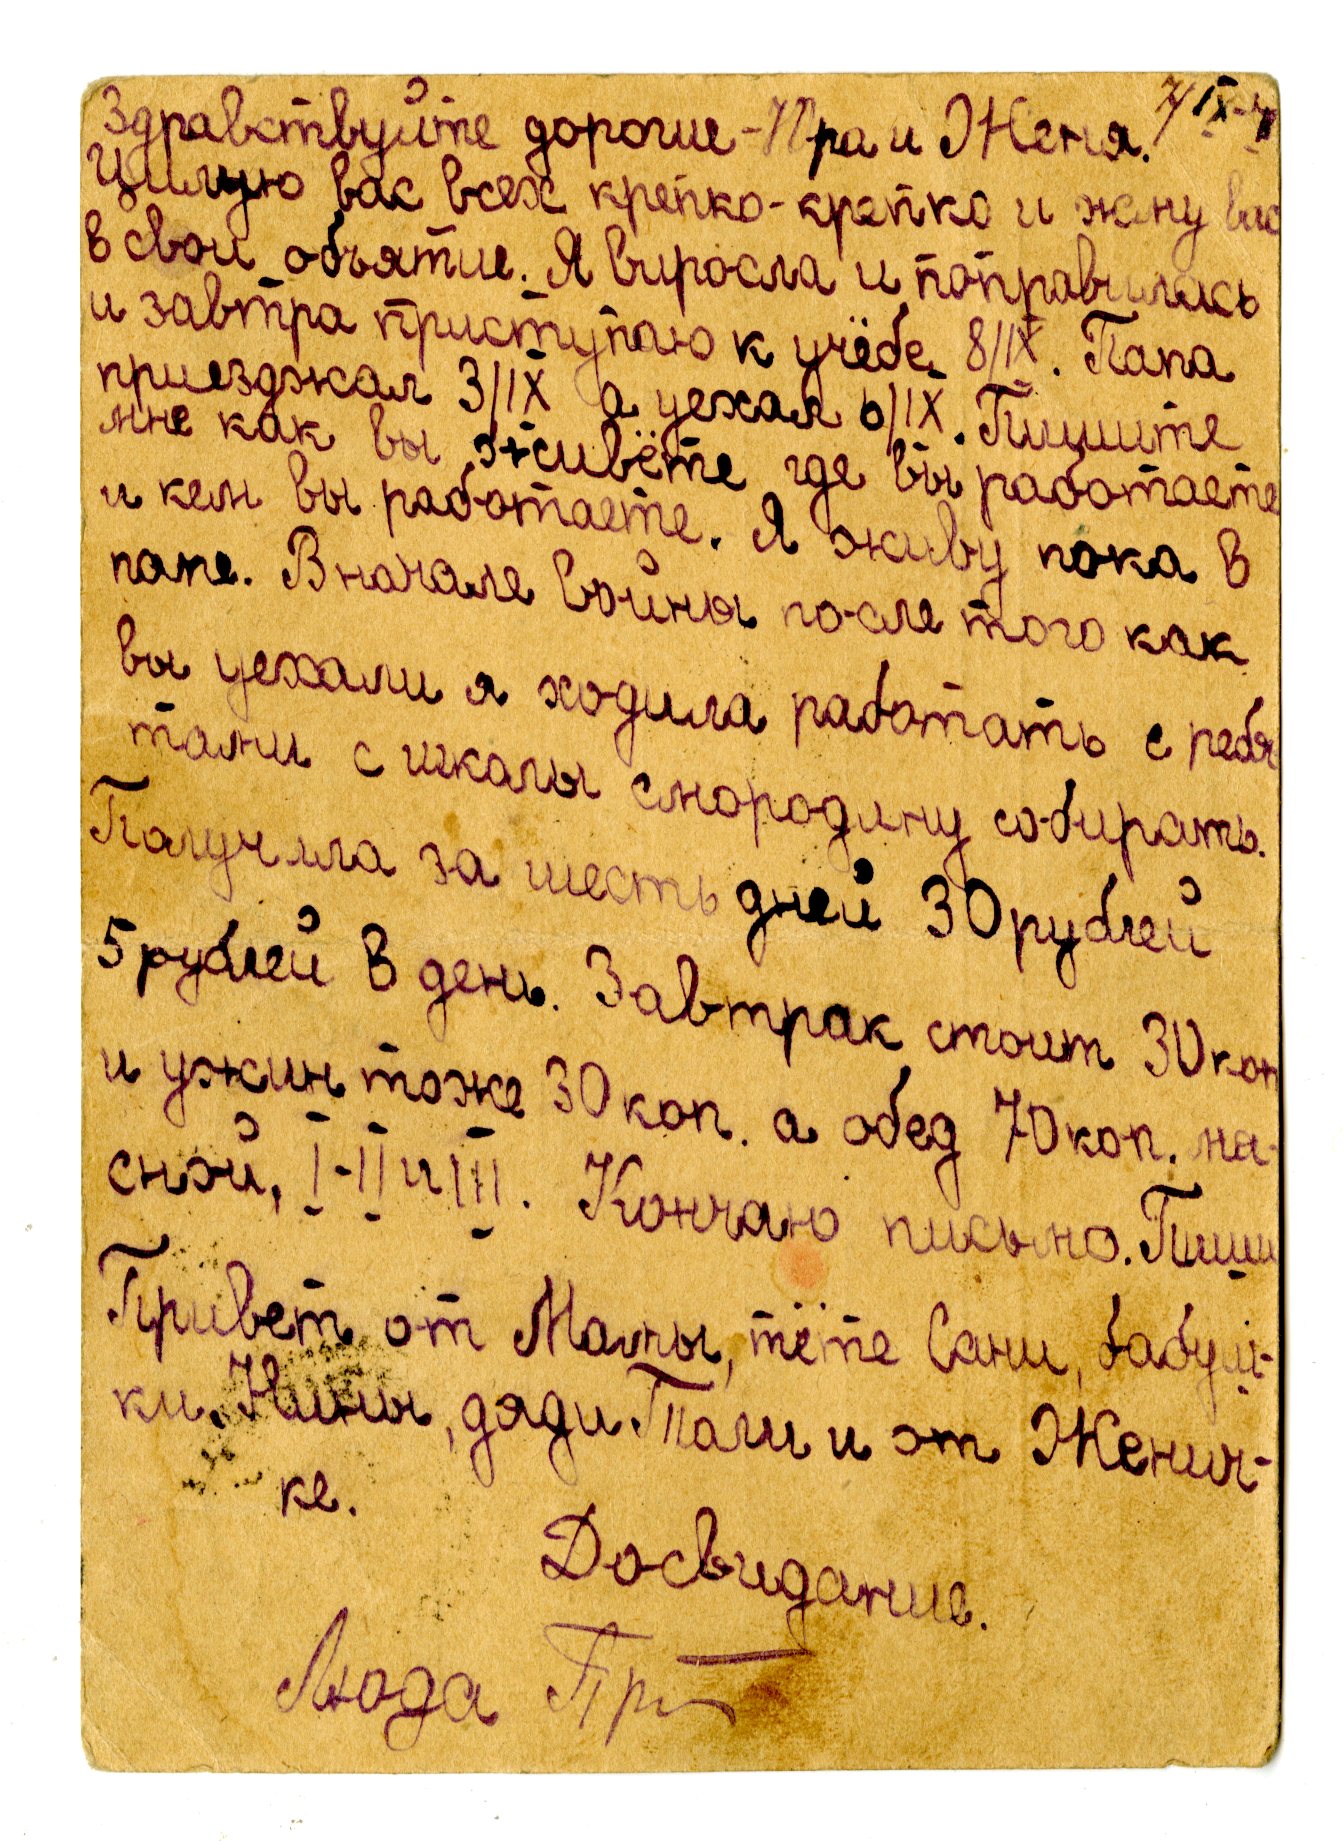 7/IX-41
Здравствуйте дорогие - Ира и Женя.
Цилую вас всех крепко-крепко и жму вас
в свои объятие. Я виросла и поправилась
и завтра приступаю к учёбе 8/IX. Папа
приезджал 3/IX а уехал 6/IX. Пишите
мне как вы живёте где вы работаете
и кем вы работаете. Я живу пока в
папе. Вначале войны после того как
вы уехали я ходила работать с ребя
тами с школы смородину собирать.
Получила за шесть дней 30 рублей
5 рублей в день. Завтрак стоит 30 коп
и ужин тоже 30 коп. а обед 70 коп. мя-
сной, I-II и III. Кончаю письмо. Пиши
Привет от Мамы, тёте Сани, бабуш-
ки. Нины, дяди Толи и от Женич-
ке.
Досвидание.
Люда